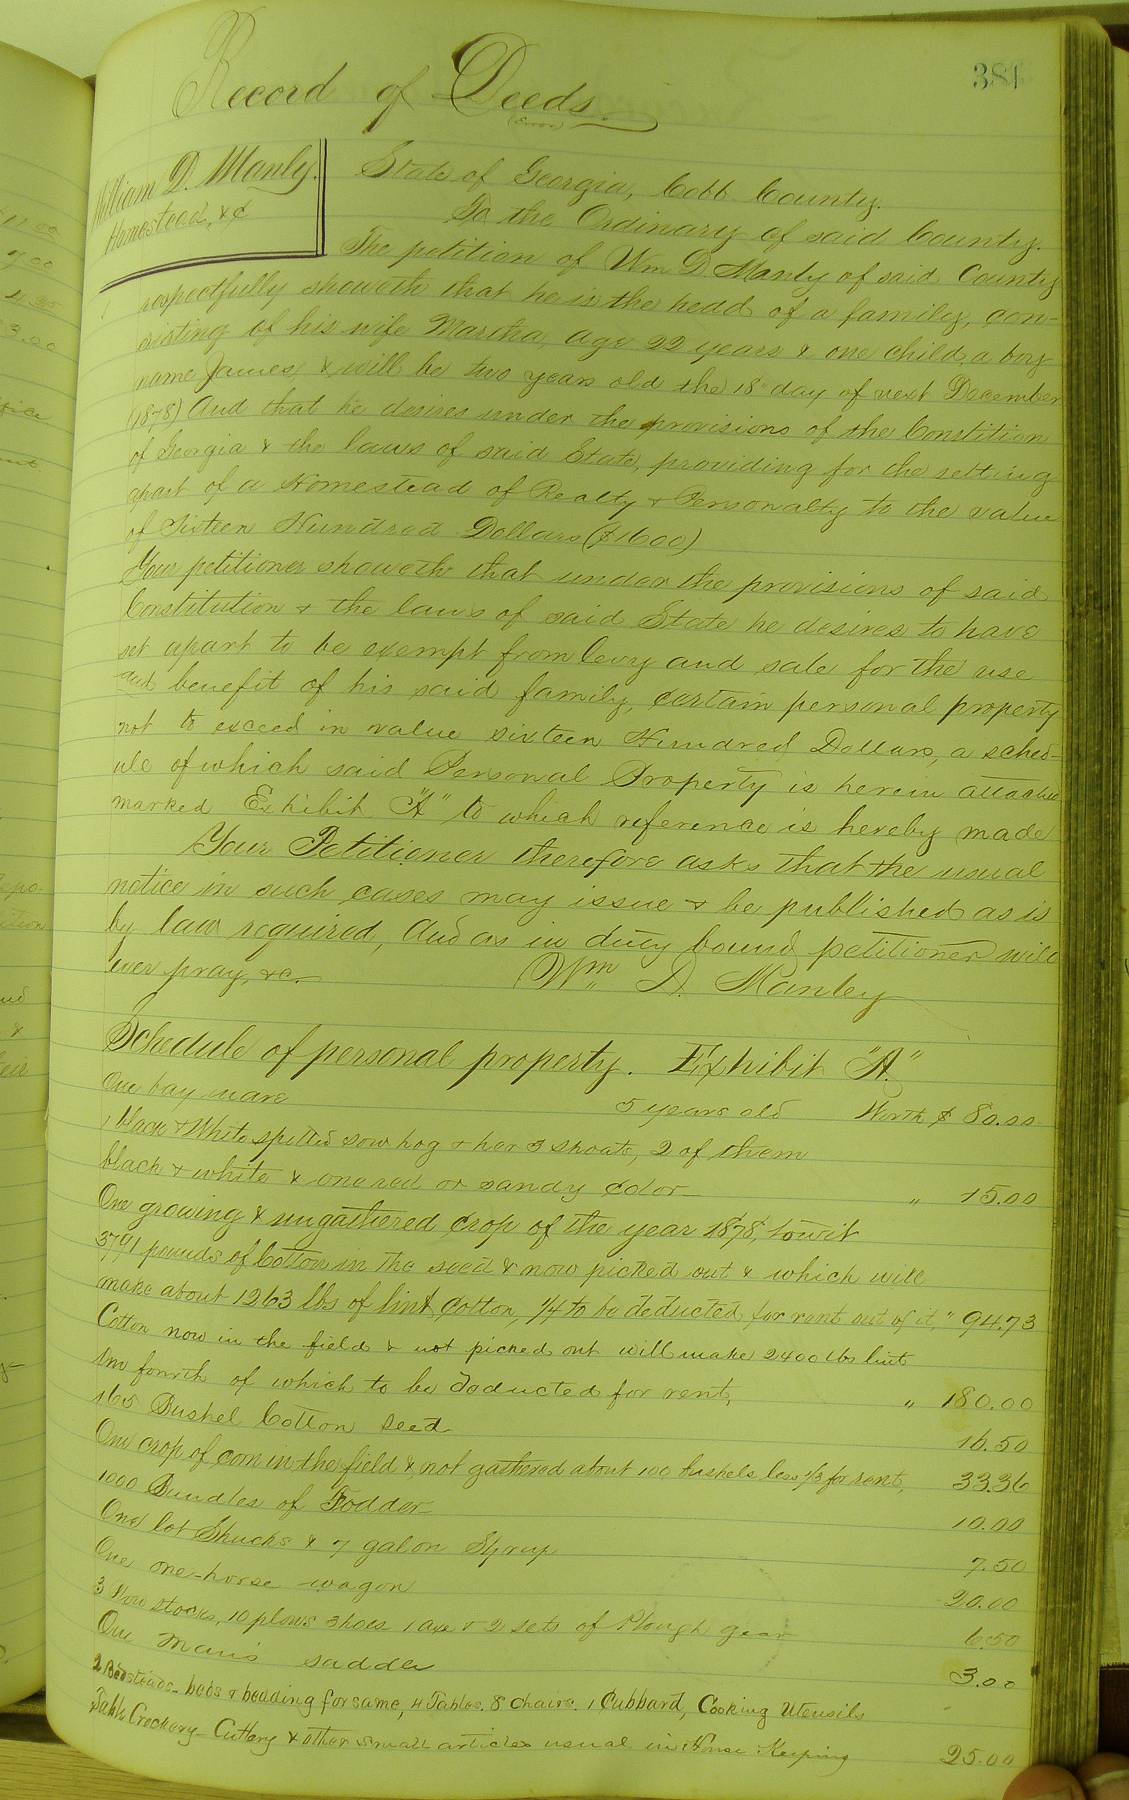 381
Record of Deeds.
(Error)
William D. Manly.
Homestead, &c
State of Georgia, Cobb County.
To the Ordinary of said County.
The petition of Wm D. Manly of said County
respectfully showeth that he is the head of a family, con-
sisting of his wife Martha, age 22 years & one child, a boy
name James, & will be two years old the 18 day of next December
(1878) And that he desires under the provisions of the Constition
of Georgia & the laws of said State, providing for the setting
apart of a Homestead of Realty & Personalty to the value
of Sixteen Hundred Dollars ($1600)
Your petitioner showeth that under the provisions of said
Constitution & the laws of said State he desires to have
set apart to be exempt from levy and sale for the use
and benefit of his said family, certain personal property
not to exceed in value sixteen Hundred Dollars, a sched-
ule of which said Personal Property is herein attached
marked Exhibit "A" to which reference is hereby made
Your Petitioner therefore asks that the usual
notice in such cases may issue & be published as is
by law required, And as in duty bound petitioner will
ever pray, &c. Wm D. Manley
Schedule of personal property. Exhibit "A."
One bay mare 5 years old Worth $ 80.00
1 Black & White spotted sow hog & her 3 shoats, 2 of them
black & white & one red or sandy color " 15.00
One growing & ungathered crop of the year 1878, towit
3791 pounds of Cotton in the seed & now picked out & which will
make about 1263 lbs of lint cotton, 1/4 to be deducted for rent out of it, " 94.73
Cotton now in the field & not picked out will make 2400 lbs lint
one fourth of which to be deducted for rent, " 180.00
165 Bushel Cotton seed 16.50
One crop of corn in the field & not gathered about 100 bushels less 1/3 for rent, 33.36
1000 Bundles of Fodder 10.00
One lot Shucks & 7 galon Syrup 7.50
One one-horse wagon 20.00
3 Plow stocks, 10 plows shoes 1 axe & 2 sets of Plough gear 6.50
One man's saddle 3.00
2 Bedsteads beds & bedding for same, 4 Tables. 8 Chairs. 1 Cubbard, Cooking Utensils
Table Crockery Cutlery & other small articles usual in House Keeping 25.00